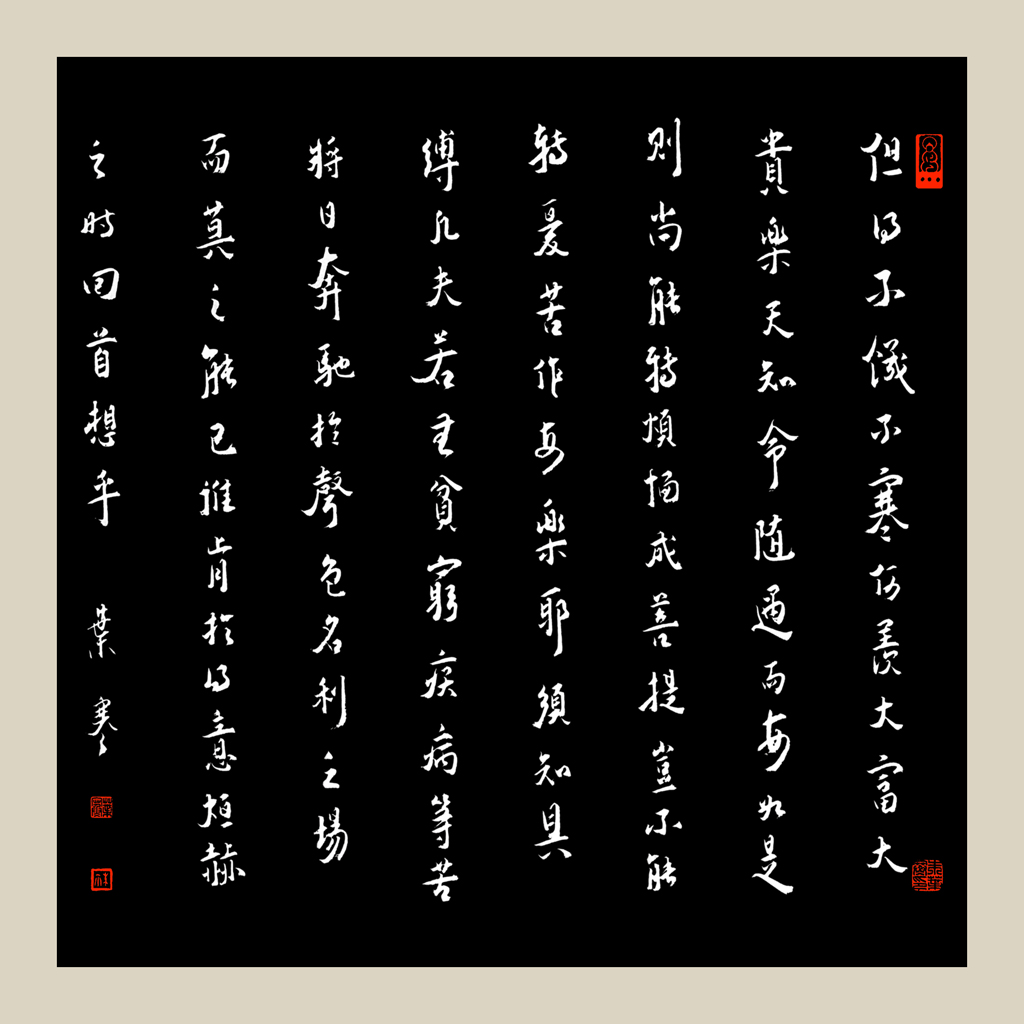 但得不饑不寒何羨大富大
貴樂天知命随遇而安如是
則尚能轉煩惱成菩提豈不能
轉憂苦作安樂耶須知具
縛凡夫若無貧窮疾病等苦
將日奔馳於聲色名利之場
而莫之能已誰肯於得意烜赫
之時回首想乎
葉寒